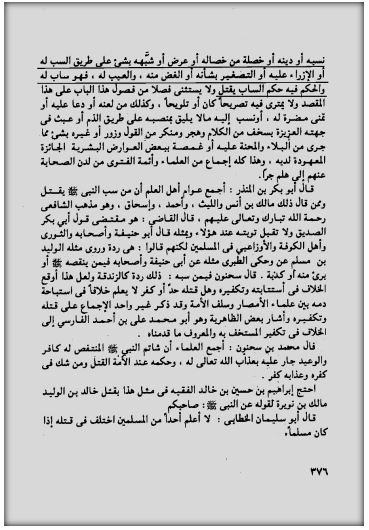 نسبه أو دينه أو خصلة من خصاله أو عرض أو شبَّهه بشئ على طريق السب له
أو الإزراء عليه أو التصغير بشأنه أو الغض منه ، والعيب له ، فهو ساب له
والحكم فيه حكم الساب يقتل ولا يستثنى فصلا من فصول هذا الباب على هذا
المقصد ولا يمترى فيه تصريحاً كان أو تلويحاً ، وكذلك من لعنه أو دعا عليه أو
تمنى مضرة له ، أونسب إليه مالا يليق بمنصبه على طريق الذم أو عبث فى
جهته العزيزة بسخف من الكلام وهجر ومنكر من القول وزور أو غيره بشئ مما
جرى من البلاء والمحنة عليه أو غمصة ببعض العوارض البشرية الجائزة
المعهودة لديه ، وهذا كله إجماع من العلماء وأئمة الفتوى من لدن الصحابة
عنهم إلى هلم جرا.
قال أبو بكر بن المنذر : أجمع عوام أهل العلم أن من سب النبى ﷺ يقتل
وممن قال ذلك مالك بن أنس والليث ، وأحمد ، وإسحاق ، وهو مذهب الشافعى
رحمة الله تبارك وتعالى عليهم ، قال القاضى : هو مقتضى قول أبي بكر
الصديق ولا تقبل توبته عند هؤلاء ومثله قال أبو حنيفة وأصحابه والثورى
وأهل الكوفة والأوزاعى فى المسلمين لكنهم قالوا : هى ردة وروى مثله الوليد
بن مسلم عن وحكى الطبرى مثله عن أبى حنيفة وأصحابه فيمن ينقصه ﷺ أو
برئ منه أو كذبة . قال سحنون فيمن سبه : ذلك ردة كالزندقة ولعل هذا أوقع
الخلاف فى أستتابته وتكفيره وهل قتله حداً أو كفر لا يعلم خلافاً فى استباحة
دمه بين علماء الأمصار وسلف الأمة وقد ذكر غير واحد الإجماع على قتله
وتكفيره وأشار بعض الظاهرية وهو أبو محمد على بن أحمد الفارسى إلى
الخلاف فى تكفير المستخف به والمعروف ما قدمناه .
قال محمد بن سحنون : أجمع العلماء أن شاتم النبى ﷺ المتنقص له كافر
والوعيد جار عليه بعذاب الله تعالى له ، وحكمه عند الأمة القتل ومن شك فى
كفره وعذابه كفر .
احتج إبراهيم بن حسين بن خالد الفقيه فى مثل هذا بقتل خالد بن الوليد
مالك بن نويرة لقوله عن النبى ﷺ : صاحبكم
قال أبو سليمان الخطابى : لا أعلم أحداً من المسلمين اختلف فى قتله إذا
كان مسلماً.
٣٧٦